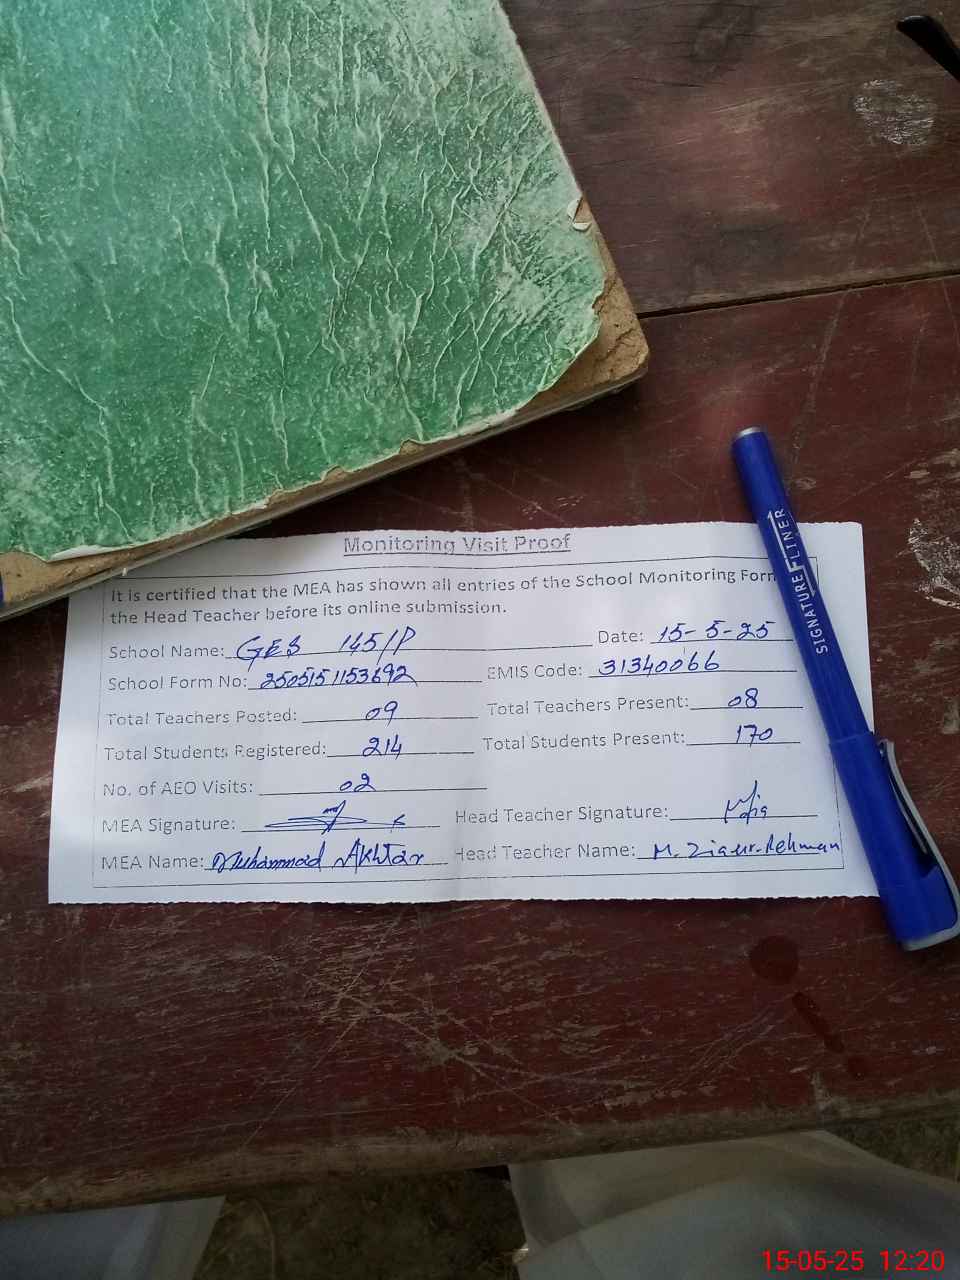 Monitoring Visit Proof
It is certified that the MEA has shown all entries of the School Monitoring Form
the Head Teacher before its online submission.
School Name: GES 145/P Date: 15-5-25
School Form No: 2505151153692 EMIS Code: 31340066
Total Teachers Posted: 09 Total Teachers Present: 08
Total Students Registered: 214 Total Students Present: 170
No. of AEO Visits: 02
MEA Signature: Head Teacher Signature:
MEA Name: Muhammad Akhtar Head Teacher Name: M. Ziaur-Rehman
SIGNATURE FLINER
15-05-25 12:20